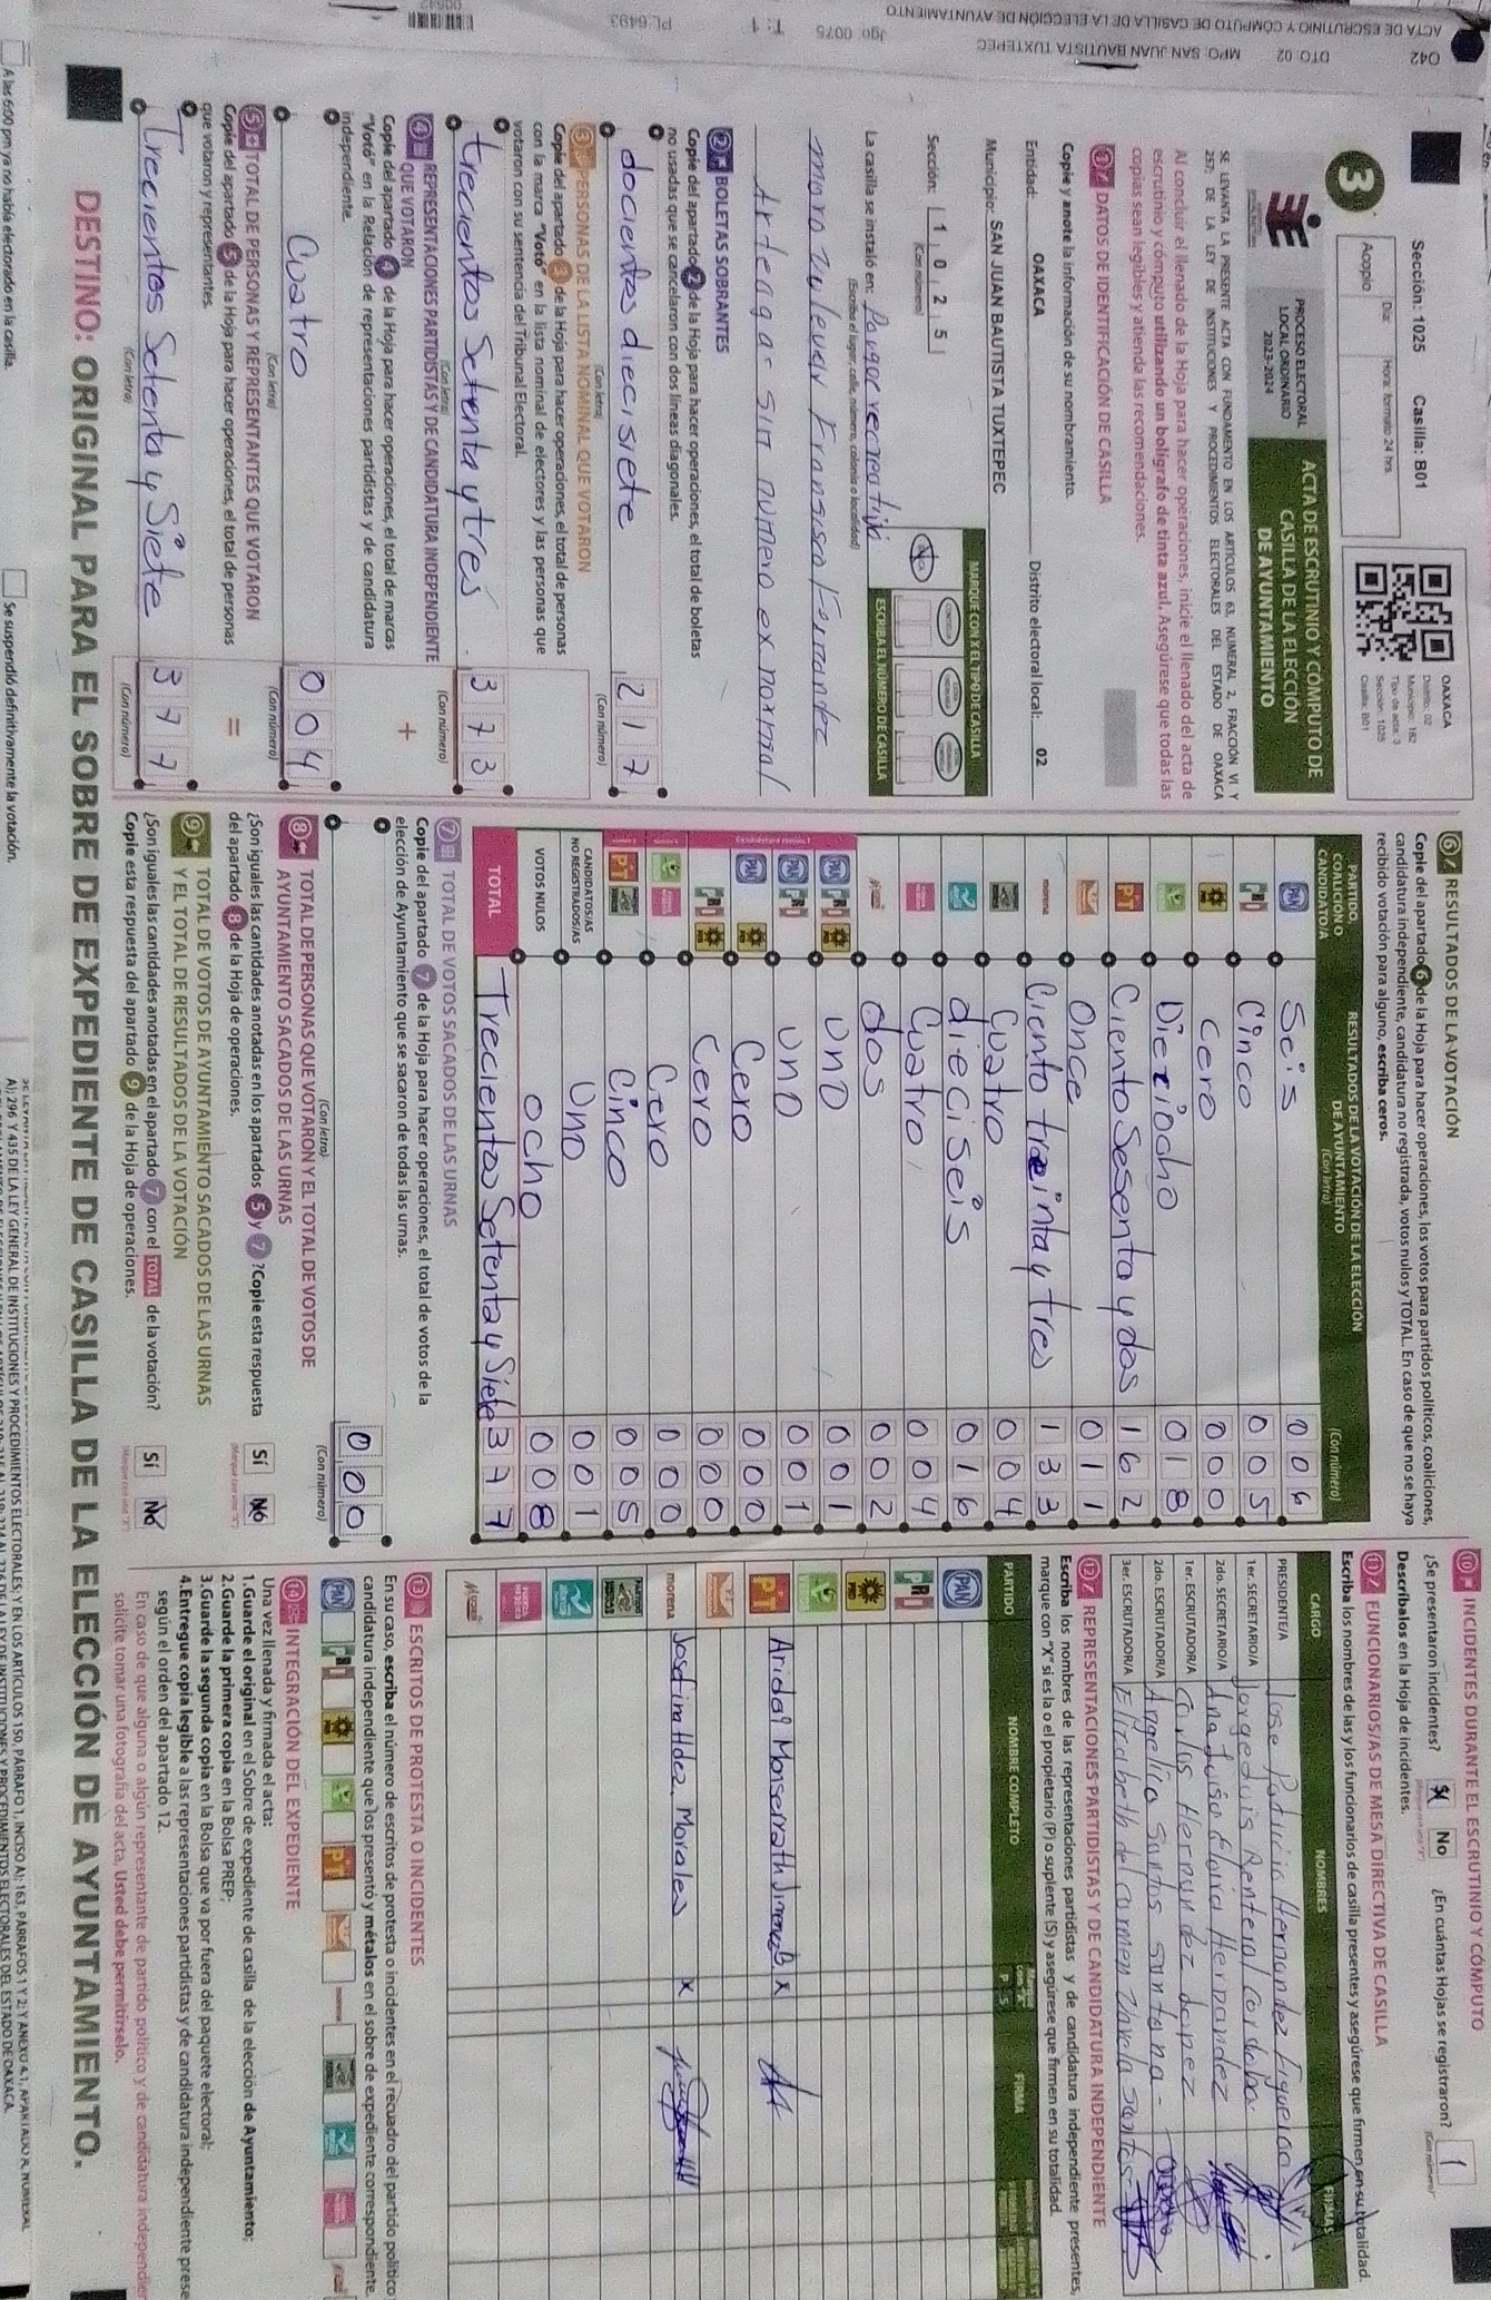 ACTA DE ESCRUTINIO Y CÓMPUTO DE CASILLA DE LA ELECCIÓN DE AYUNTAMIENTO
042 DTO: 02 MPO: SAN JUAN BAUTISTA TUXTEPEC Jgo. 0075 T: 1 PL:6493
Sección: 1025 Casilla: B01
Día: Hora: formato 24 hrs.
Acopio
3
OAXACA
Distrito: 02
Municipio: 182
Tipo de acta: 3
Sección: 1025
Casilla: B01
PROCESO ELECTORAL
LOCAL ORDINARIO
2023-2024
ACTA DE ESCRUTINIO Y CÓMPUTO DE
CASILLA DE LA ELECCIÓN
DE AYUNTAMIENTO
SE LEVANTA LA PRESENTE ACTA CON FUNDAMENTO EN LOS ARTÍCULOS 63, NUMERAL 2, FRACCIÓN VI Y
257; DE LA LEY DE INSTITUCIONES Y PROCEDIMIENTOS ELECTORALES DEL ESTADO DE OAXACA
Al concluir el llenado de la Hoja para hacer operaciones, inicie el llenado del acta de
escrutinio y cómputo utilizando un bolígrafo de tinta azul. Asegúrese que todas las
copias sean legibles y atienda las recomendaciones.
1 DATOS DE IDENTIFICACIÓN DE CASILLA
Copie y anote la información de su nombramiento.
Entidad: OAXACA Distrito electoral local: 02
Municipio: SAN JUAN BAUTISTA TUXTEPEC
MARQUE CON X EL TIPO DE CASILLA
Sección: 1 0 2 5
(Con número)
ESCRIBA EL NÚMERO DE CASILLA
La casilla se instaló en: Parque recreativo
(Escriba el lugar, calle, número, colonia o localidad)
moro zulevar Fransisco Fernandez
Arteaga - sin numero ex normal
2 BOLETAS SOBRANTES
Copie del apartado 2 de la Hoja para hacer operaciones, el total de boletas
no usadas que se cancelaron con dos líneas diagonales.
docientos diecisiete 2 1 7
(Con letra) (Con número)
3 PERSONAS DE LA LISTA NOMINAL QUE VOTARON
Copie del apartado 3 de la Hoja para hacer operaciones, el total de personas
con la marca "Votó" en la lista nominal de electores y las personas que
votaron con su sentencia del Tribunal Electoral.
trecientos setenta y tres 3 7 3
(Con letra) (Con número)
4 REPRESENTACIONES PARTIDISTAS Y DE CANDIDATURA INDEPENDIENTE
QUE VOTARON
Copie del apartado 4 de la Hoja para hacer operaciones, el total de marcas
"Votó" en la Relación de representaciones partidistas y de candidatura
independiente.
+
Cuatro 0 0 4
(Con letra) (Con número)
5 TOTAL DE PERSONAS Y REPRESENTANTES QUE VOTARON
Copie del apartado 5 de la Hoja para hacer operaciones, el total de personas
que votaron y representantes.
=
Trecientos Setenta y Siete 3 7 7
(Con letra) (Con número)
6 RESULTADOS DE LA VOTACIÓN
Copie del apartado 6 de la Hoja para hacer operaciones, los votos para partidos políticos, coaliciones,
candidatura independiente, candidatura no registrada, votos nulos y TOTAL. En caso de que no se haya
recibido votación para alguno, escriba ceros.
PARTIDO, COALICIÓN O CANDIDATO/A
RESULTADOS DE LA VOTACIÓN DE LA ELECCIÓN
DE AYUNTAMIENTO
(Con letra) (Con número)
PAN Seis 0 0 6
PRI Cinco 0 0 5
PRD Cero 0 0 0
Dieziocho 0 1 8
PT Ciento Sesenta y dos 1 6 2
Once 0 1 1
morena Ciento treinta y tres 1 3 3
Cuatro 0 0 4
dieciseis 0 1 6
Cuatro 0 0 4
dos 0 0 2
PAN PRI PRD Uno 0 0 1
PAN PRI Uno 0 0 1
PAN PRD Cero 0 0 0
PRI PRD Cero 0 0 0
Cero 0 0 0
PT Cinco 0 0 5
CANDIDATOS/AS NO REGISTRADOS/AS Uno 0 0 1
VOTOS NULOS ocho 0 0 8
TOTAL Trecientos Setenta y Siete 3 7 7
7 TOTAL DE VOTOS SACADOS DE LAS URNAS
Copie del apartado 7 de la Hoja para hacer operaciones, el total de votos de la
elección de Ayuntamiento que se sacaron de todas las urnas.
0 0 0
(Con letra) (Con número)
8 TOTAL DE PERSONAS QUE VOTARON Y EL TOTAL DE VOTOS DE
AYUNTAMIENTO SACADOS DE LAS URNAS
¿Son iguales las cantidades anotadas en los apartados 5 y 7 ? Copie esta respuesta
del apartado 8 de la Hoja de operaciones.
Sí No
9 TOTAL DE VOTOS DE AYUNTAMIENTO SACADOS DE LAS URNAS
Y EL TOTAL DE RESULTADOS DE LA VOTACIÓN
¿Son iguales las cantidades anotadas en el apartado 7 con el TOTAL de la votación?
Copie esta respuesta del apartado 9 de la Hoja de operaciones.
Sí No
10 INCIDENTES DURANTE EL ESCRUTINIO Y CÓMPUTO
¿Se presentaron incidentes? Sí No ¿En cuántas Hojas se registraron? 1
Descríbalos en la Hoja de incidentes.
11 FUNCIONARIOS/AS DE MESA DIRECTIVA DE CASILLA
Escriba los nombres de las y los funcionarios de casilla presentes y asegúrese que firmen en su totalidad.
CARGO NOMBRES FIRMAS
PRESIDENTE/A Jose Patricio Hernandez Figueroa
1er. SECRETARIO/A Jorge Luis Renteral Cordoba.
2do. SECRETARIO/A Ana Luisa Elvira Hernandez
1er. ESCRUTADOR/A Carlos Hernandez Lopez
2do. ESCRUTADOR/A Angelica Santos Santana -
3er. ESCRUTADOR/A Elizabeth del Carmen Zavala Santos
12 REPRESENTACIONES PARTIDISTAS Y DE CANDIDATURA INDEPENDIENTE
Escriba los nombres de las representaciones partidistas y de candidatura independiente presentes,
marque con "X" si es la o el propietario (P) o suplente (S) y asegúrese que firmen en su totalidad.
PARTIDO NOMBRE COMPLETO P S FIRMA
PAN
PRI
PRD
PT Aridai Monserrath Jimenez B x
morena Josefina Hdez. Morales x
13 ESCRITOS DE PROTESTA O INCIDENTES
En su caso, escriba el número de escritos de protesta o incidentes en el recuadro del partido político
candidatura independiente que los presentó y métalos en el sobre de expediente correspondiente.
PAN PRI PRD PT morena
14 INTEGRACIÓN DEL EXPEDIENTE
Una vez llenada y firmada el acta:
1.Guarde el original en el Sobre de expediente de casilla de la elección de Ayuntamiento;
2.Guarde la primera copia en la Bolsa PREP;
3.Guarde la segunda copia en la Bolsa que va por fuera del paquete electoral;
4.Entregue copia legible a las representaciones partidistas y de candidatura independiente prese
según el orden del apartado 12.
En caso de que alguna o algún representante de partido político y de candidatura independier
solicite tomar una fotografía del acta, Usted debe permitírselo.
DESTINO: ORIGINAL PARA EL SOBRE DE EXPEDIENTE DE CASILLA DE LA ELECCIÓN DE AYUNTAMIENTO.
A las 6:00 pm ya no había electorado en la casilla.
Se suspendió definitivamente la votación.